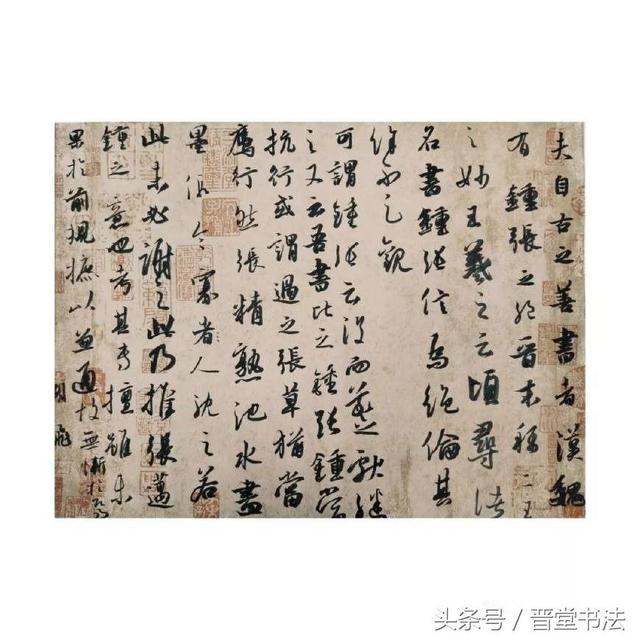 夫自古之善書者漢魏
有鍾張之絕晉末稱二王
之妙王羲之云頃尋諸
名書鍾張信為絕倫其
餘不足觀
可謂鍾張云沒而羲獻繼
之又云吾書比之鍾張鍾當
抗行或謂過之張草猶當
鴈行然張精熟池水盡
墨假令寡者人耽之若
此未必謝之此乃推張邁
鍾之意也考其專擅雖未
果於前規摭以兼通故無慚於
头条号 / 晋堂书法